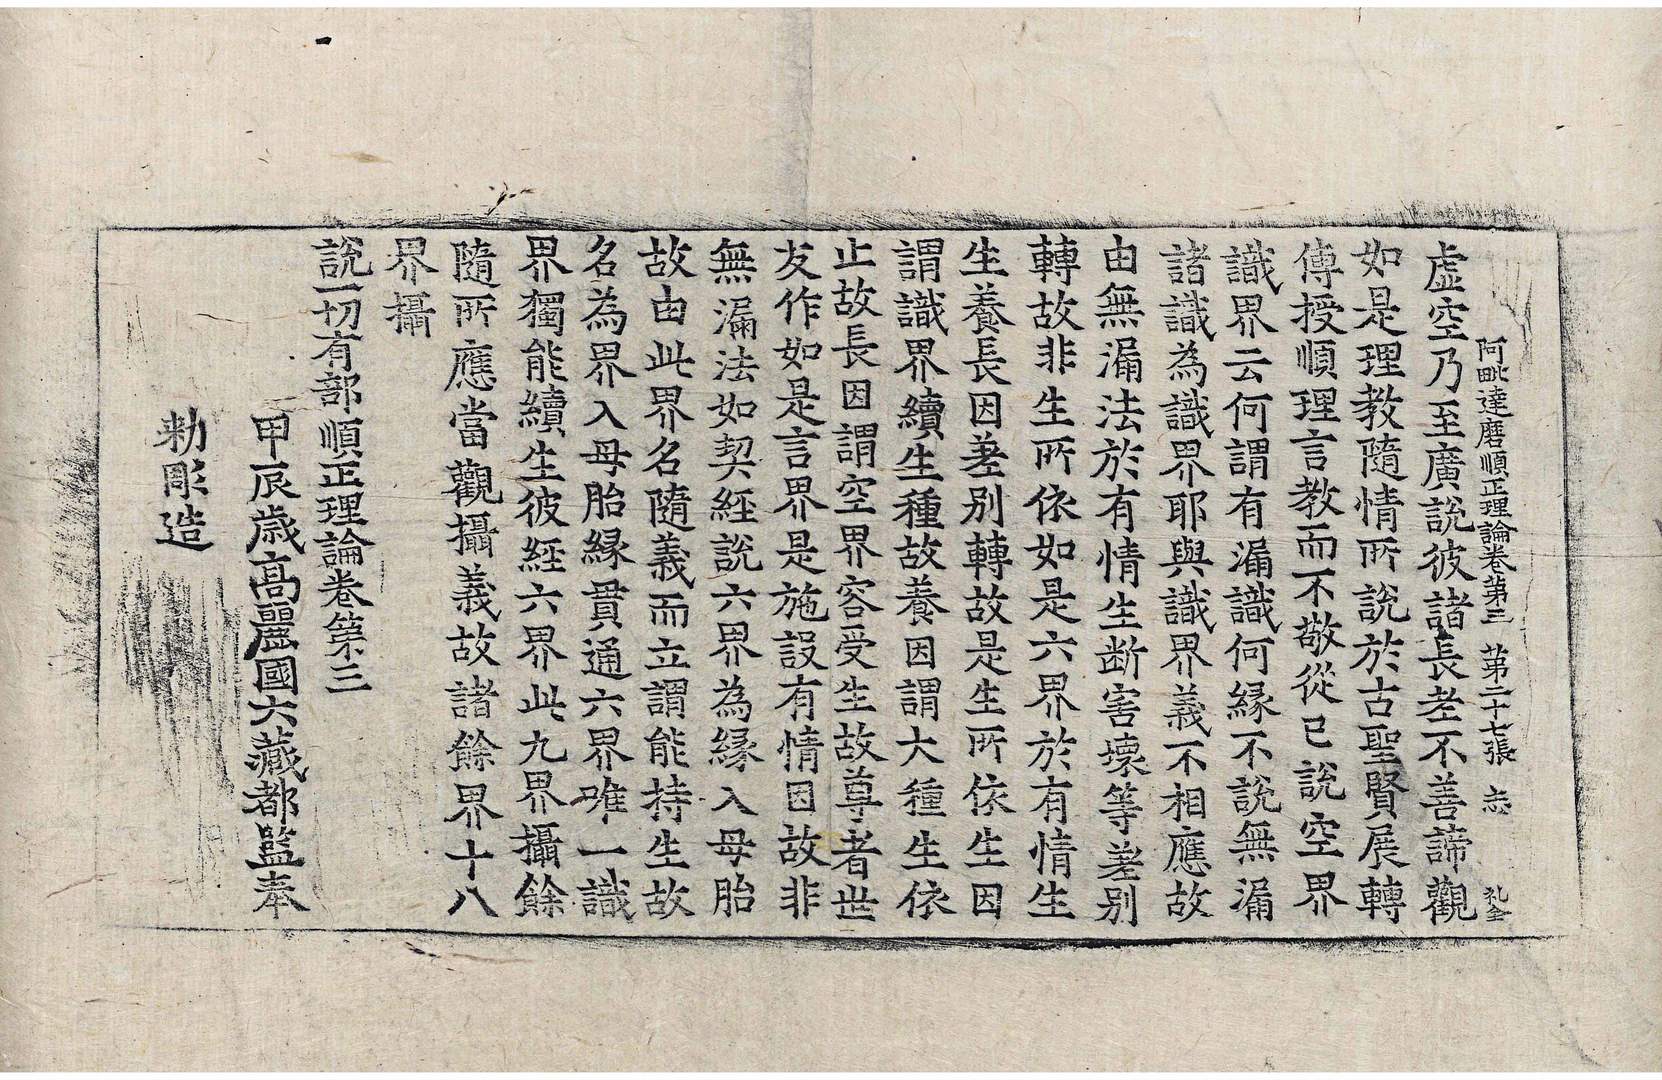 阿毗達磨順正理論卷第三 第二十七張 志 礼金
虛空乃至廣說彼諸長老不善諦觀
如是理教隨情所說於古聖賢展轉
傳授順理言教而不敬從已說空界
識界云何謂有漏識何緣不說無漏
諸識為識界耶與識界義不相應故
由無漏法於有情生断害壞等差別
轉故非生所依如是六界於有情生
生養長因差別轉故是生所依生因
謂識界續生種故養因謂大種生依
止故長因謂空界容受生故尊者世
友作如是言界是施設有情因故非
無漏法如契經說六界為緣入母胎
故由此界名隨義而立謂能持生故
名為界入母胎緣貫通六界唯一識
界獨能續生彼經六界此九界攝餘
隨所應當觀攝義故諸餘界十八
界攝
說一切有部順正理論卷第三
甲辰歲高麗國大藏都監奉
勑彫造